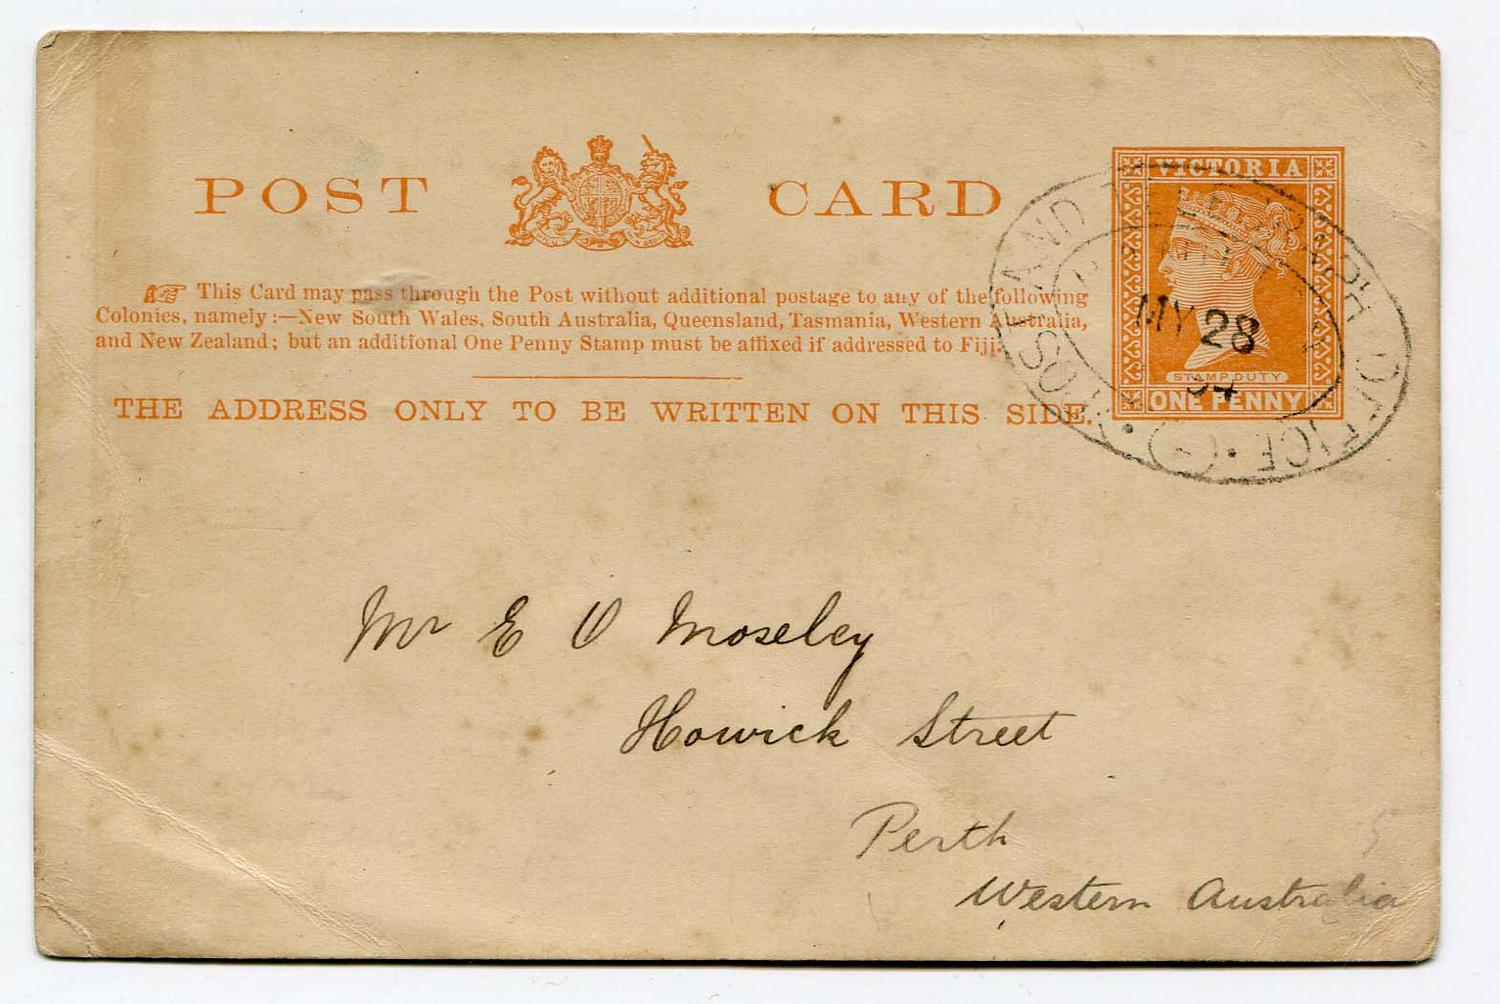 POST CARD
This Card may pass through the Post without additional postage to any of the following
Colonies, namely:—New South Wales, South Australia, Queensland, Tasmania, Western Australia,
and New Zealand; but an additional One Penny Stamp must be affixed if addressed to Fiji.
THE ADDRESS ONLY TO BE WRITTEN ON THIS SIDE.
VICTORIA
STAMP DUTY
ONE PENNY
POST AND TELEGRAPH OFFICE
MY 28
94
Mr E O Moseley
Howick Street
Perth
Western Australia
5